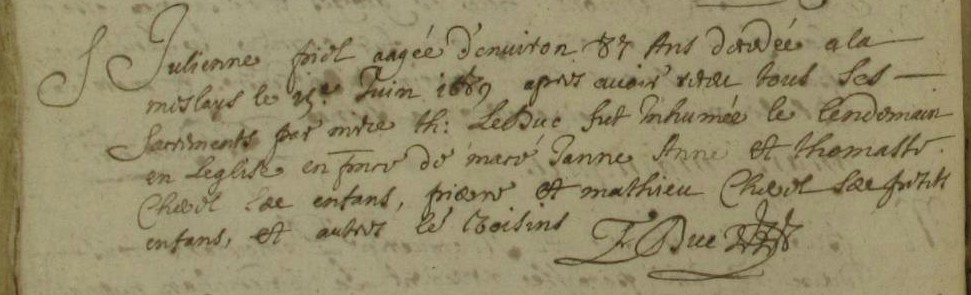 Julienne piel aagée d'environ 87 Ans decedée a la
meslays le 15e Juin 1689 apres avoir receu tous ses
Sacrements par mre th: LeDuc fut Inhumée le lendemain
en Leglise en pnce de mace Janne Anne et thomasse
enfans, pierre et mathieu petits
enfans, et autres voisins
Duc